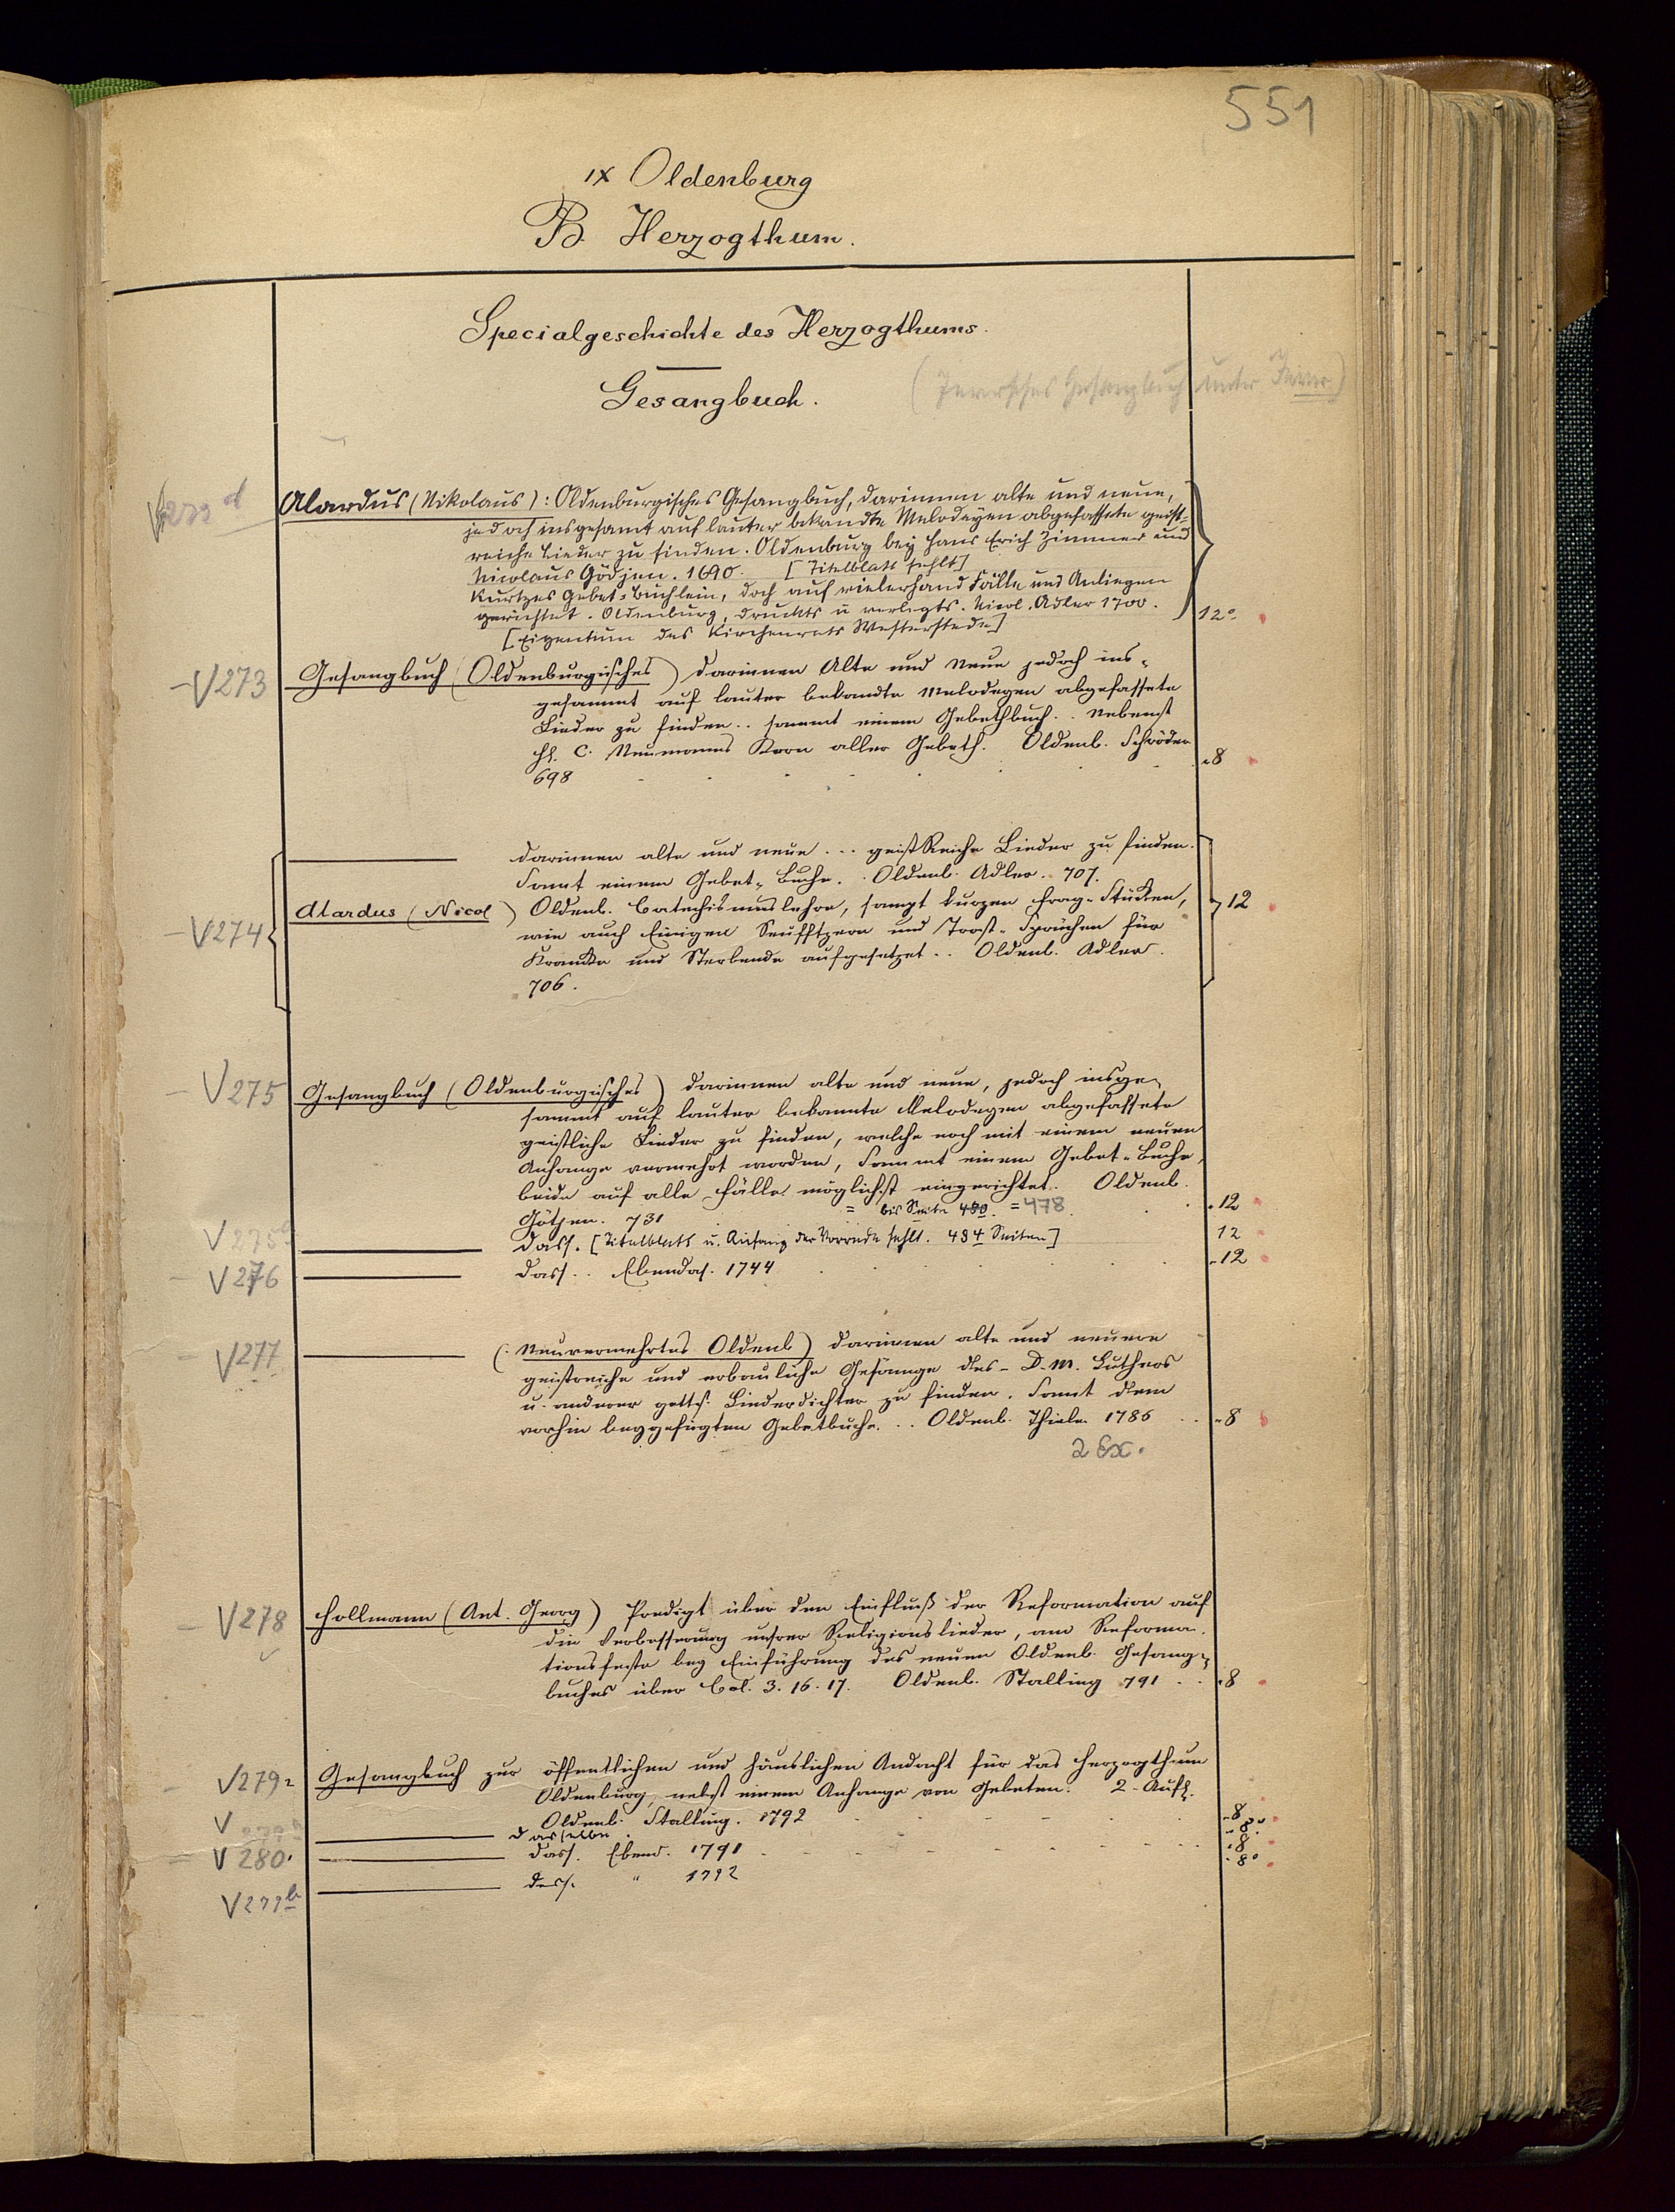 551
IX Oldenburg
B. Herzogthum.
Specialgeschichte des Herzogthums.
Gesangbuch.
(Jeversches Gesangbuch unter Jever)
Alardus (Nikolaus): Oldenburgisches Gesangbuch, darinnen alte und neue,
jedoch insgesamt auf lauter bekandte Melodeyen abgefassete geist-
reiche Lieder zu finden. Oldenburg bey Hans Erich Zimmer und
Nicolaus Gödjen. 1690. [Titelblatt fehlt]
Kurtzes Gebet-Büchlein, doch auf vielerhand Fälle und Anliegen
gerichtet. Oldenburg, druckts u verlegts. Nicol. Adler 1700. 12°
[Eigentum des Kirchenrats Westerstede]
V273 Gesangbuch (Oldenburgisches) darinnen Alte und Neue jedoch ins-
gesammt auf lauter bekandte Melodeyen abgefassete
Lieder zu finden.. sammt einem Gebethbuch.. Nebenst
C. Neumanns Kern aller Gebeth. Oldenb. Schröder
698 8
darinnen alte und neue ... geistReiche Lieder zu finden.
Samt einem Gebet-Buche. Oldenb. Adler. 707.
V274 Alardus (Nicol) Oldenb. Catechismuslehre, sampt kurzen Frag-Stücken, 12
wie auch Einigen Seufftzern und Trost-Sprüchen für
Krancke und Sterbende aufgesetzet.. Oldenb. Adler.
706.
V275 Gesangbuch (Oldenburgisches) darinnen alte und neue, jedoch insge-
sammt auf lauter bekannte Melodeyen abgefassete
geistliche Lieder zu finden, welche noch mit einem neuen
Anhange vermehrt worden, Sammt einem Gebet-Buche,
beide auf alle Fälle möglichst eingerichtet. Oldenb.
Götjen. 731 = bis Seite 480. = 478. 12
V275 dass. [Titelblatt u. Anfang der Vorrede fehlt. 484 Seiten] 12
V276 dass.. Ebendas. 1744 12
V277 (Neuvermehrtes Oldenb) darinnen alte und neuere
geistreiche und erbauliche Gesänge des - D. M. Luthers
u. anderer gotts. Liederdichter zu finden. Samt dem
vorhin beygefügten Gebetbuche... Oldenb. Thiele. 1786 8
2 Ex.
V278 Hollmann (Ant. Georg) Predigt über den Einfluß der Reformation auf
die Verbesserung unsrer Religionslieder, am Reforma-
tionsfeste bey Einführung des neuen Oldenb. Gesang-
buches über Col. 3. 16. 17. Oldenb. Stalling 791 8
V279a Gesangbuch zur öffentlichen und häuslichen Andacht für das Herzogthum
Oldenburg, nebst einem Anhange von Gebeten. 2. Aufl.
Oldenb. Stalling. 1792 8
V dasselbe 8°
V280 dass. Ebend. 1791 8
V279b dass. " 1792 8°